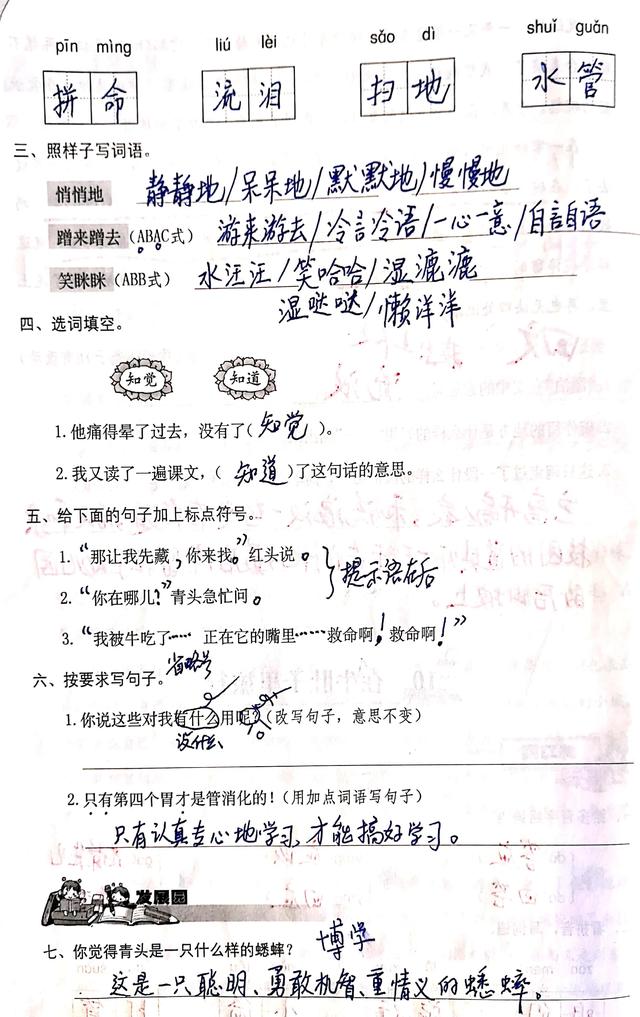 pīn mìng liú lèi sǎo dì shuǐ guǎn
拼命 流泪 扫地 水管
三、照样子写词语。
悄悄地 静静地/呆呆地/默默地/慢慢地
蹭来蹭去(ABAC式) 游来游去/冷言冷语/一心一意/自言自语
笑眯眯(ABB式) 水汪汪/笑哈哈/湿漉漉
湿哒哒/懒洋洋
四、选词填空。
知觉 知道
1.他痛得晕了过去,没有了(知觉)。
2.我又读了一遍课文,(知道)了这句话的意思。
五、给下面的句子加上标点符号。
1.“那让我先藏,你来找。”红头说。
提示语在后
2.“你在哪儿?”青头急忙问。
3.“我被牛吃了…… 正在它的嘴里……救命啊!救命啊!”
省略号
六、按要求写句子。
1.你说这些对我有什么用呢?(改写句子,意思不变)
没什么
2.只有第四个胃才是管消化的!(用加点词语写句子)
只有认真专心地学习,才能搞好学习。
发展园
七、你觉得青头是一只什么样的蟋蟀?
博学
这是一只聪明、勇敢机智、重情义的蟋蟀。